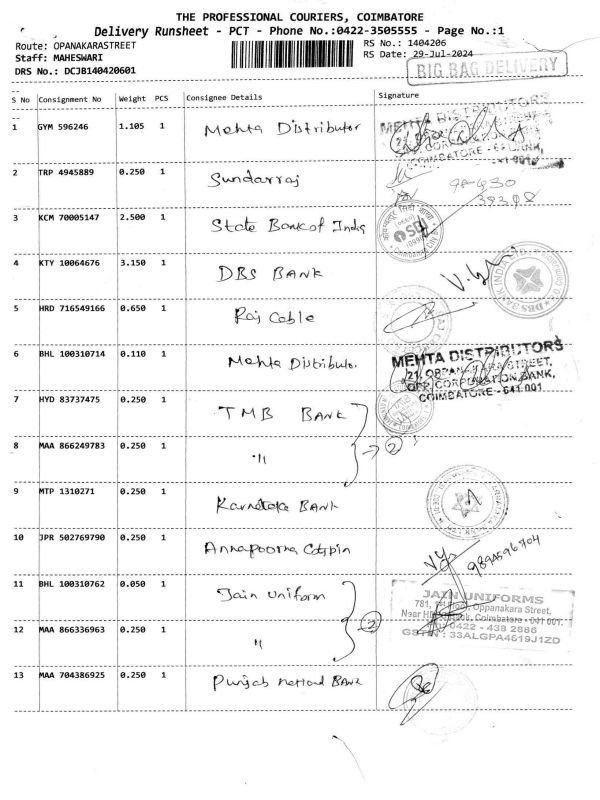 THE PROFESSIONAL COURIERS, COIMBATORE
Delivery Runsheet - PCT - Phone No.:0422-3505555 - Page No.:1
Route: OPANAKARASTREET
RS No.: 1404206
Staff: MAHESWARI
RS Date: 29-Jul-2024
DRS No.: DCJB140420601
BIG BAG DELIVERY
S No Consignment No Weight PCS Consignee Details Signature
1 GYM 596246 1.105 1 Mehta Distributor
MEHTA DISTRIBUTORS
COIMBATORE
2 TRP 4945889 0.250 1 Sundarraj
3 KCM 70005147 2.500 1 State Bank of India
SBI
4 KTY 10064676 3.150 1 DBS BANK
5 HRD 716549166 0.650 1 Raj Cable
6 BHL 100310714 0.110 1 Mehta Distributor
MEHTA DISTRIBUTORS
21, OPPANAKARA STREET,
OPP. CORPORATION BANK,
COIMBATORE - 641 001
7 HYD 83737475 0.250 1 TMB BANK
8 MAA 866249783 0.250 1 "
2
9 MTP 1310271 0.250 1 Karnataka BANK
10 JPR 502769790 0.250 1 Annapoorna
9894596704
11 BHL 100310762 0.050 1 Jain Uniform
JAIN UNIFORMS
Oppanakara Street,
Coimbatore - 641 001.
0422 - 438 2886
GSTIN : 33ALGPA4619J1ZD
2
12 MAA 866336963 0.250 1 "
13 MAA 704386925 0.250 1 Punjab National BANK